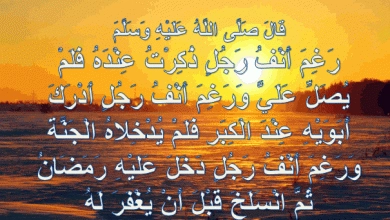 قَالَ صَلَّى اللَّهُ عَلَيْهِ وَسَلَّمَ
رَغِمَ أَنْفُ رَجُلٍ ذُكِرْتُ عِنْدَهُ فَلَمْ
يُصَلِّ عَلَيَّ وَرَغِمَ أَنْفُ رَجُلٍ أَدْرَكَ
أَبَوَيْهِ عِنْدَ الْكِبَرِ فَلَمْ يُدْخِلَاهُ الْجَنَّةَ
ورغم أَنْفُ رَجُلٍ دخل عليْه رمضانُ
ثُمَّ انْسلخ قبْل أنْ يُغْفر لهُ